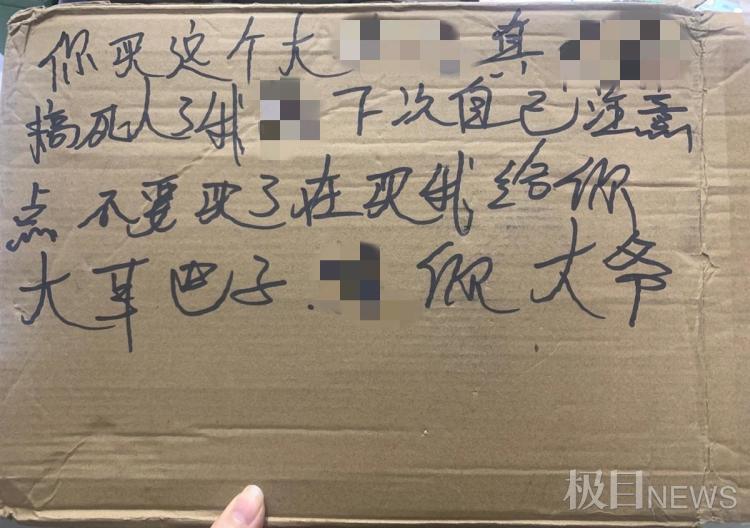 你买这个大 真
搞死人了我 下次自己注意
点不要买了在买我给你
大耳巴子 你大爷
极目NEWS